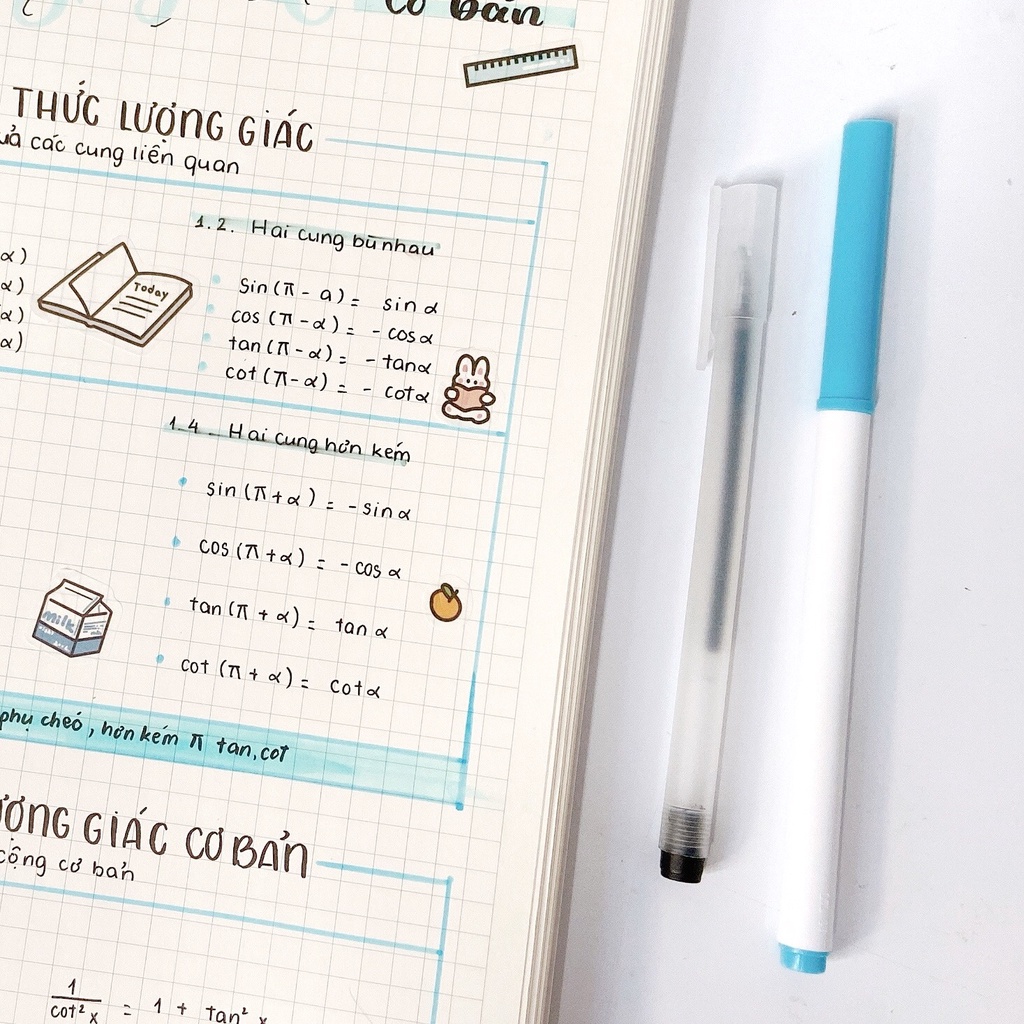 cơ bản
THỨC LƯỢNG GIÁC
các cung liên quan
1.2. Hai cung bù nhau
α)
α)
α)
α)
Today
Sin (π - a) = sin α
cos (π - α) = - cos α
tan (π - α) = - tan α
cot (π - α) = - cot α
1.4 Hai cung hơn kém
sin (π + α) = - sin α
cos (π + α) = - cos α
tan (π + α) = tan α
cot (π + α) = cot α
milk
phụ chéo, hơn kém π tan, cot
ƯỢNG GIÁC CƠ BẢN
cộng cơ bản
1/cot² x = 1 + tan² x